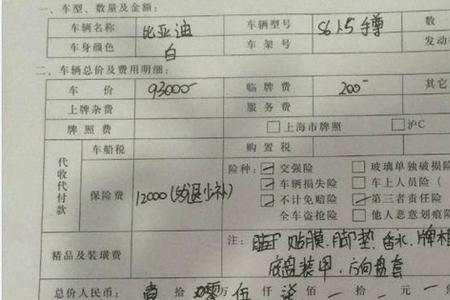 一、车型、数量及金额:
车辆名称 比亚迪 车辆型号 S6 1.5 尊 数
车身颜色 白 车架号 发动
二、车辆总价及费用明细:
车价 93000 临牌费 200 其它
上牌杂费 服务费
牌照费 □上海市牌照 □沪C
代收代付款
车船税 购置税
保险费 12000(多退少补) 险种: ☑交强险 □玻璃单独破损险
☑车辆损失险 □车上人员险(
☑不计免赔险 ☑第三者责任险
全车盗抢险 □他人恶意划痕险
精品及装璜费 注: 贴膜 脚垫 香水 牌
底盘装甲 方向盘套
总价人民币: 壹 拾 零 万 伍 仟